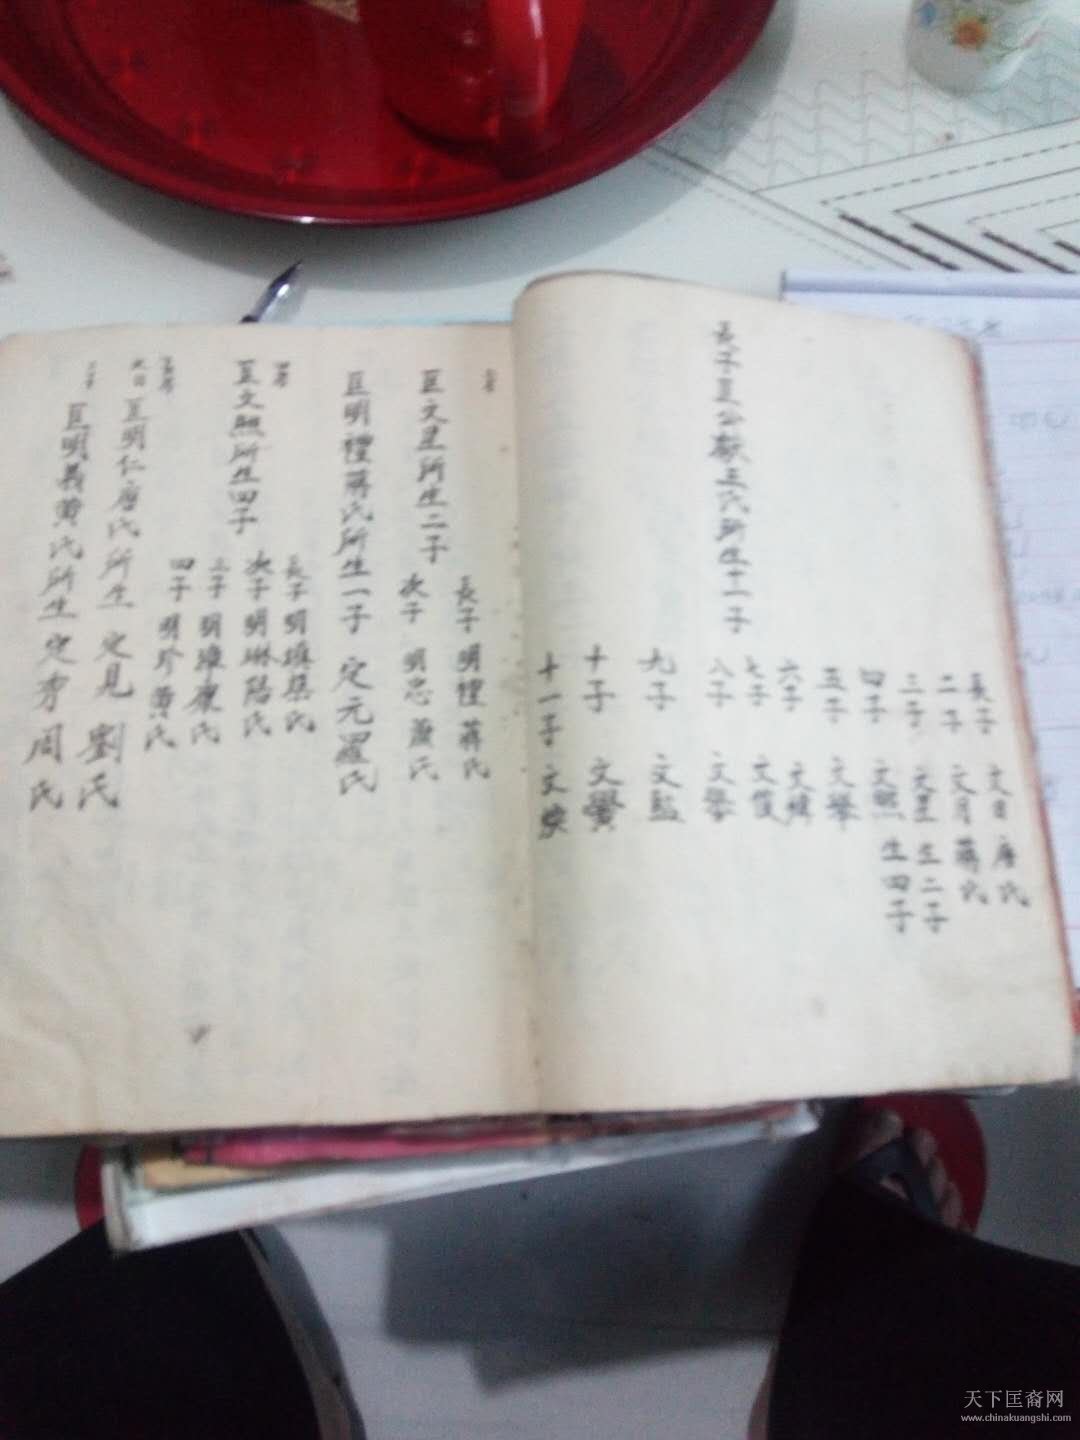 長子匡公献王氏所生十一子
長子 文日 唐氏
二子 文月 蔣氏
三子 文星 生二子
四子 文熙 生四子
五子 文舉
六子 文緯
七子 文俊
八子
九子
十子 文黌
十一子 文焕
匡文星所生二子
長子 明禮 蔣氏
次子 明忠 蕭氏
匡明禮蔣氏所生一子 定元羅氏
匡文熙所生四子
長子 明 氏
次子 明琳 氏
三子 明 康氏
四子 明珍 黄氏
匡明仁唐氏所生 定見 劉氏
匡明義黄氏所生 定 周氏
天下匡裔网
www.chinakuangshi.com